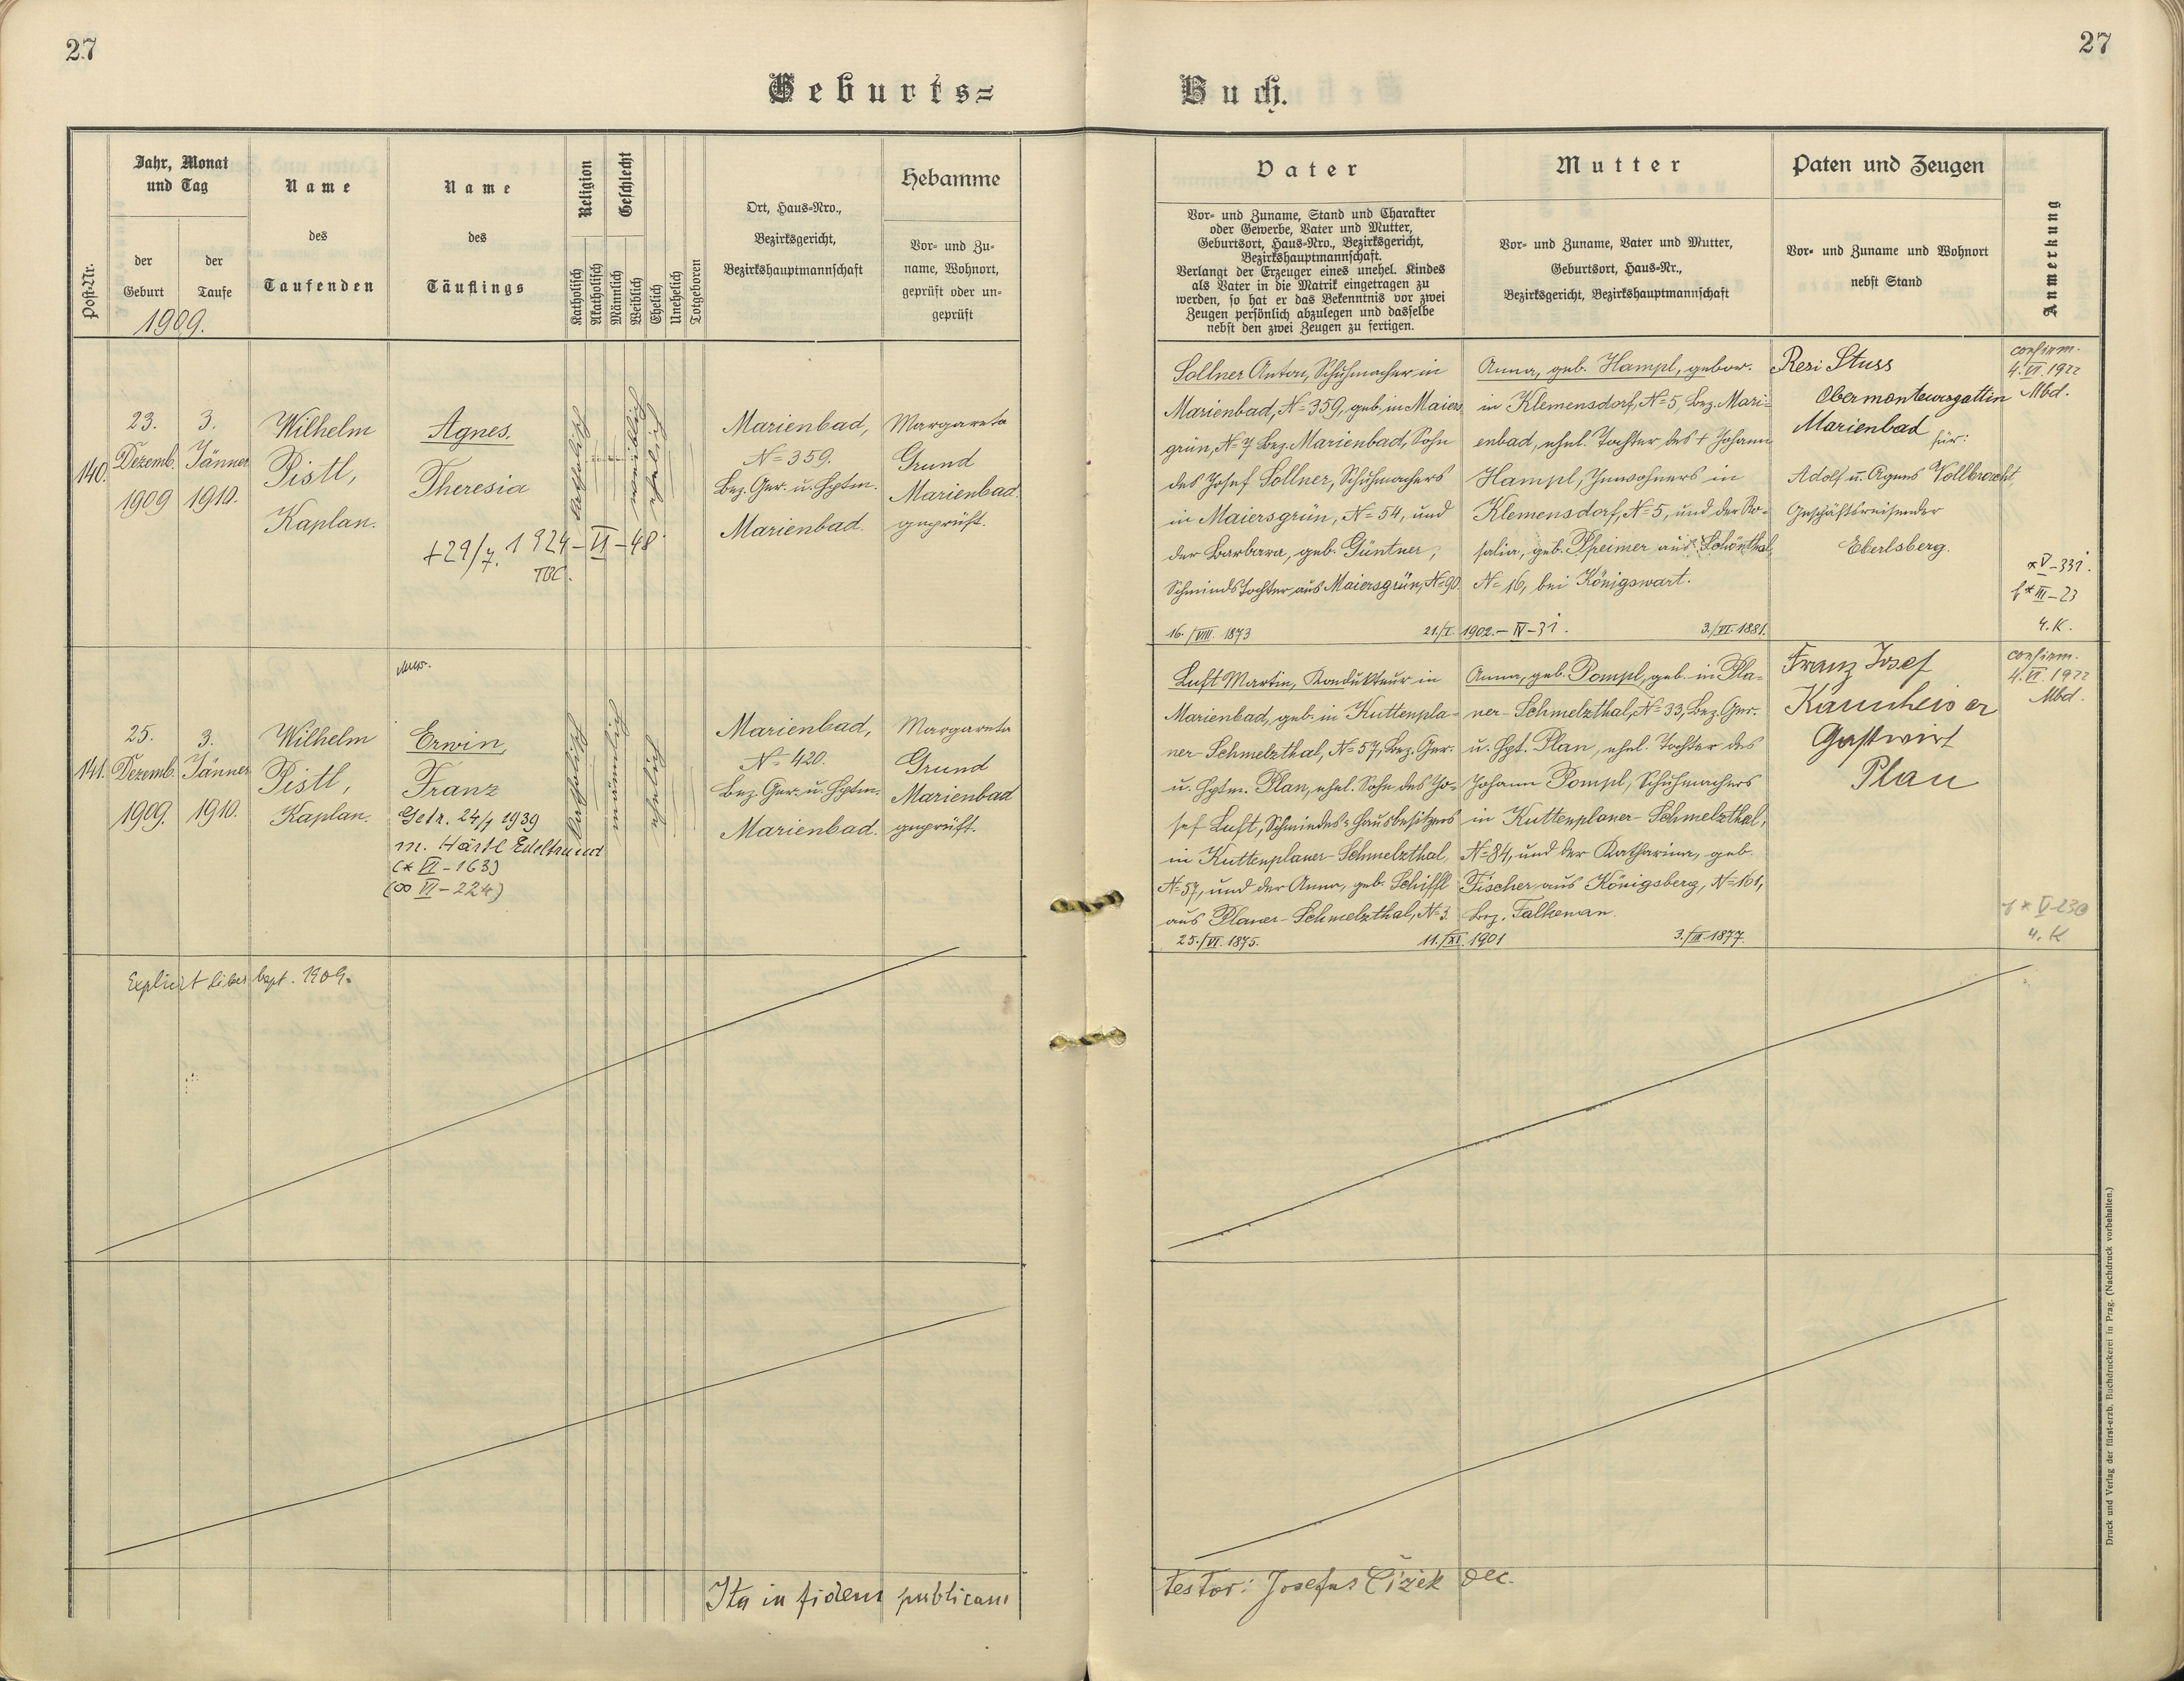 27
27
Geburts=
Buch.
Post-Nr.
Jahr, Monat
und Tag
der
Geburt
der
Taufe
1909.
Name
des
Taufenden
Name
des
Täuflings
Religion
Geschlecht
Katholisch
Akatholisch
Männlich
Weiblich
Ehelich
Unehelich
Totgeboren
Ort, Haus-Nro.,
Bezirksgericht,
Bezirkshauptmannschaft
Hebamme
Vor- und Zu-
name, Wohnort,
geprüft oder un-
geprüft
Vater
Vor- und Zuname, Stand und Charakter
oder Gewerbe, Vater und Mutter,
Geburtsort, Haus-Nro., Bezirksgericht,
Bezirkshauptmannschaft.
Verlangt der Erzeuger eines unehel. Kindes
als Vater in die Matrik eingetragen zu
werden, so hat er das Bekenntnis vor zwei
Zeugen persönlich abzulegen und dasselbe
nebst den zwei Zeugen zu fertigen.
Mutter
Vor- und Zuname, Vater und Mutter,
Geburtsort, Haus-Nr.,
Bezirksgericht, Bezirkshauptmannschaft
Paten und Zeugen
Vor- und Zuname und Wohnort
nebst Stand
Anmerkung
140.
23.
Dezemb.
1909
3.
Jänner
1910.
Wilhelm
Pistl,
Kaplan.
Agnes.
Theresia
+29/7. 1924–II–48.
TBC.
katholisch
weiblich
ehelich
Marienbad,
N= 359.
Bez. Ger. u. Hptm.
Marienbad.
Margareta
Grund
Marienbad.
geprüft.
Sollner Anton, Schuhmacher in
Marienbad, N= 359, geb. in Maiers
grün, N= 7 Bez. Marienbad, Sohn
des Josef Sollner, Schuhmachers
in Maiersgrün, N= 54, und
der Barbara, geb. Güntner,
Schmieds Tochter aus Maiersgrün, N= 90.
16./VIII. 1873
21./I. 1902.–IV–31.
3./VI. 1881.
Anna, geb. Hampl, gebor.
in Klemensdorf, N= 5, Bez. Mari-
enbad, ehel. Tochter des + Johann
Hampl, Inwohners in
Klemensdorf, N= 5, und der Ro-
salia, geb. Pheimer aus Schönthal,
N= 16, bei Königswart.
Resi Stuss
Obermonteursgattin
Marienbad für:
Adolf u. Agnes Vollbracht,
Geschäftsreisender
Eberlsberg.
confirm.
4.VI. 1922
Mbd.
*V–331.
III–23
4. K.
141.
25.
Dezemb.
1909.
3.
Jänner
1910.
Wilhelm
Pistl,
Kaplan.
Erwin,
Franz
Getr. 24/7 1939
m. Härtl Edeltraud
(* VI–163)
(∞ VI–224)
katholisch
männlich
ehelich
Marienbad,
N= 420.
Bez. Ger. u. Hptm.
Marienbad.
Margareta
Grund
Marienbad
geprüft.
Luft Martin, Kondukteur in
Marienbad, geb. in Kuttenpla-
ner-Schmelzthal, N= 57, Bez. Ger.
u. Hptm. Plan, ehel. Sohn des Jo-
sef Luft, Schmiedes u. Hausbesitzers
in Kuttenplaner-Schmelzthal,
N= 57, und der Anna, geb. Schiffl
aus Planer-Schmelzthal, N= 3.
25./VI. 1875.
11./XI. 1901
3./III. 1877.
Anna, geb. Pompl, geb. in Pla-
ner-Schmelzthal, N= 33, Bez. Ger.
u. Hpt. Plan, ehel. Tochter des
Johann Pompl, Schuhmachers
in Kuttenplaner-Schmelzthal,
N= 84, und der Katharina, geb.
Fischer aus Königsberg, N= 161,
Bez. Falkenau.
Franz Josef
Gastwirt
Plan
confirm.
4.VI. 1922
Mbd.
V–230
4. K
Explicit liber bapt. 1909.
Ita in fidem publicam
testor: Josefus Čížek Dec.
Druck und Verlag der fürst-erzb. Buchdruckerei in Prag. (Nachdruck vorbehalten.)